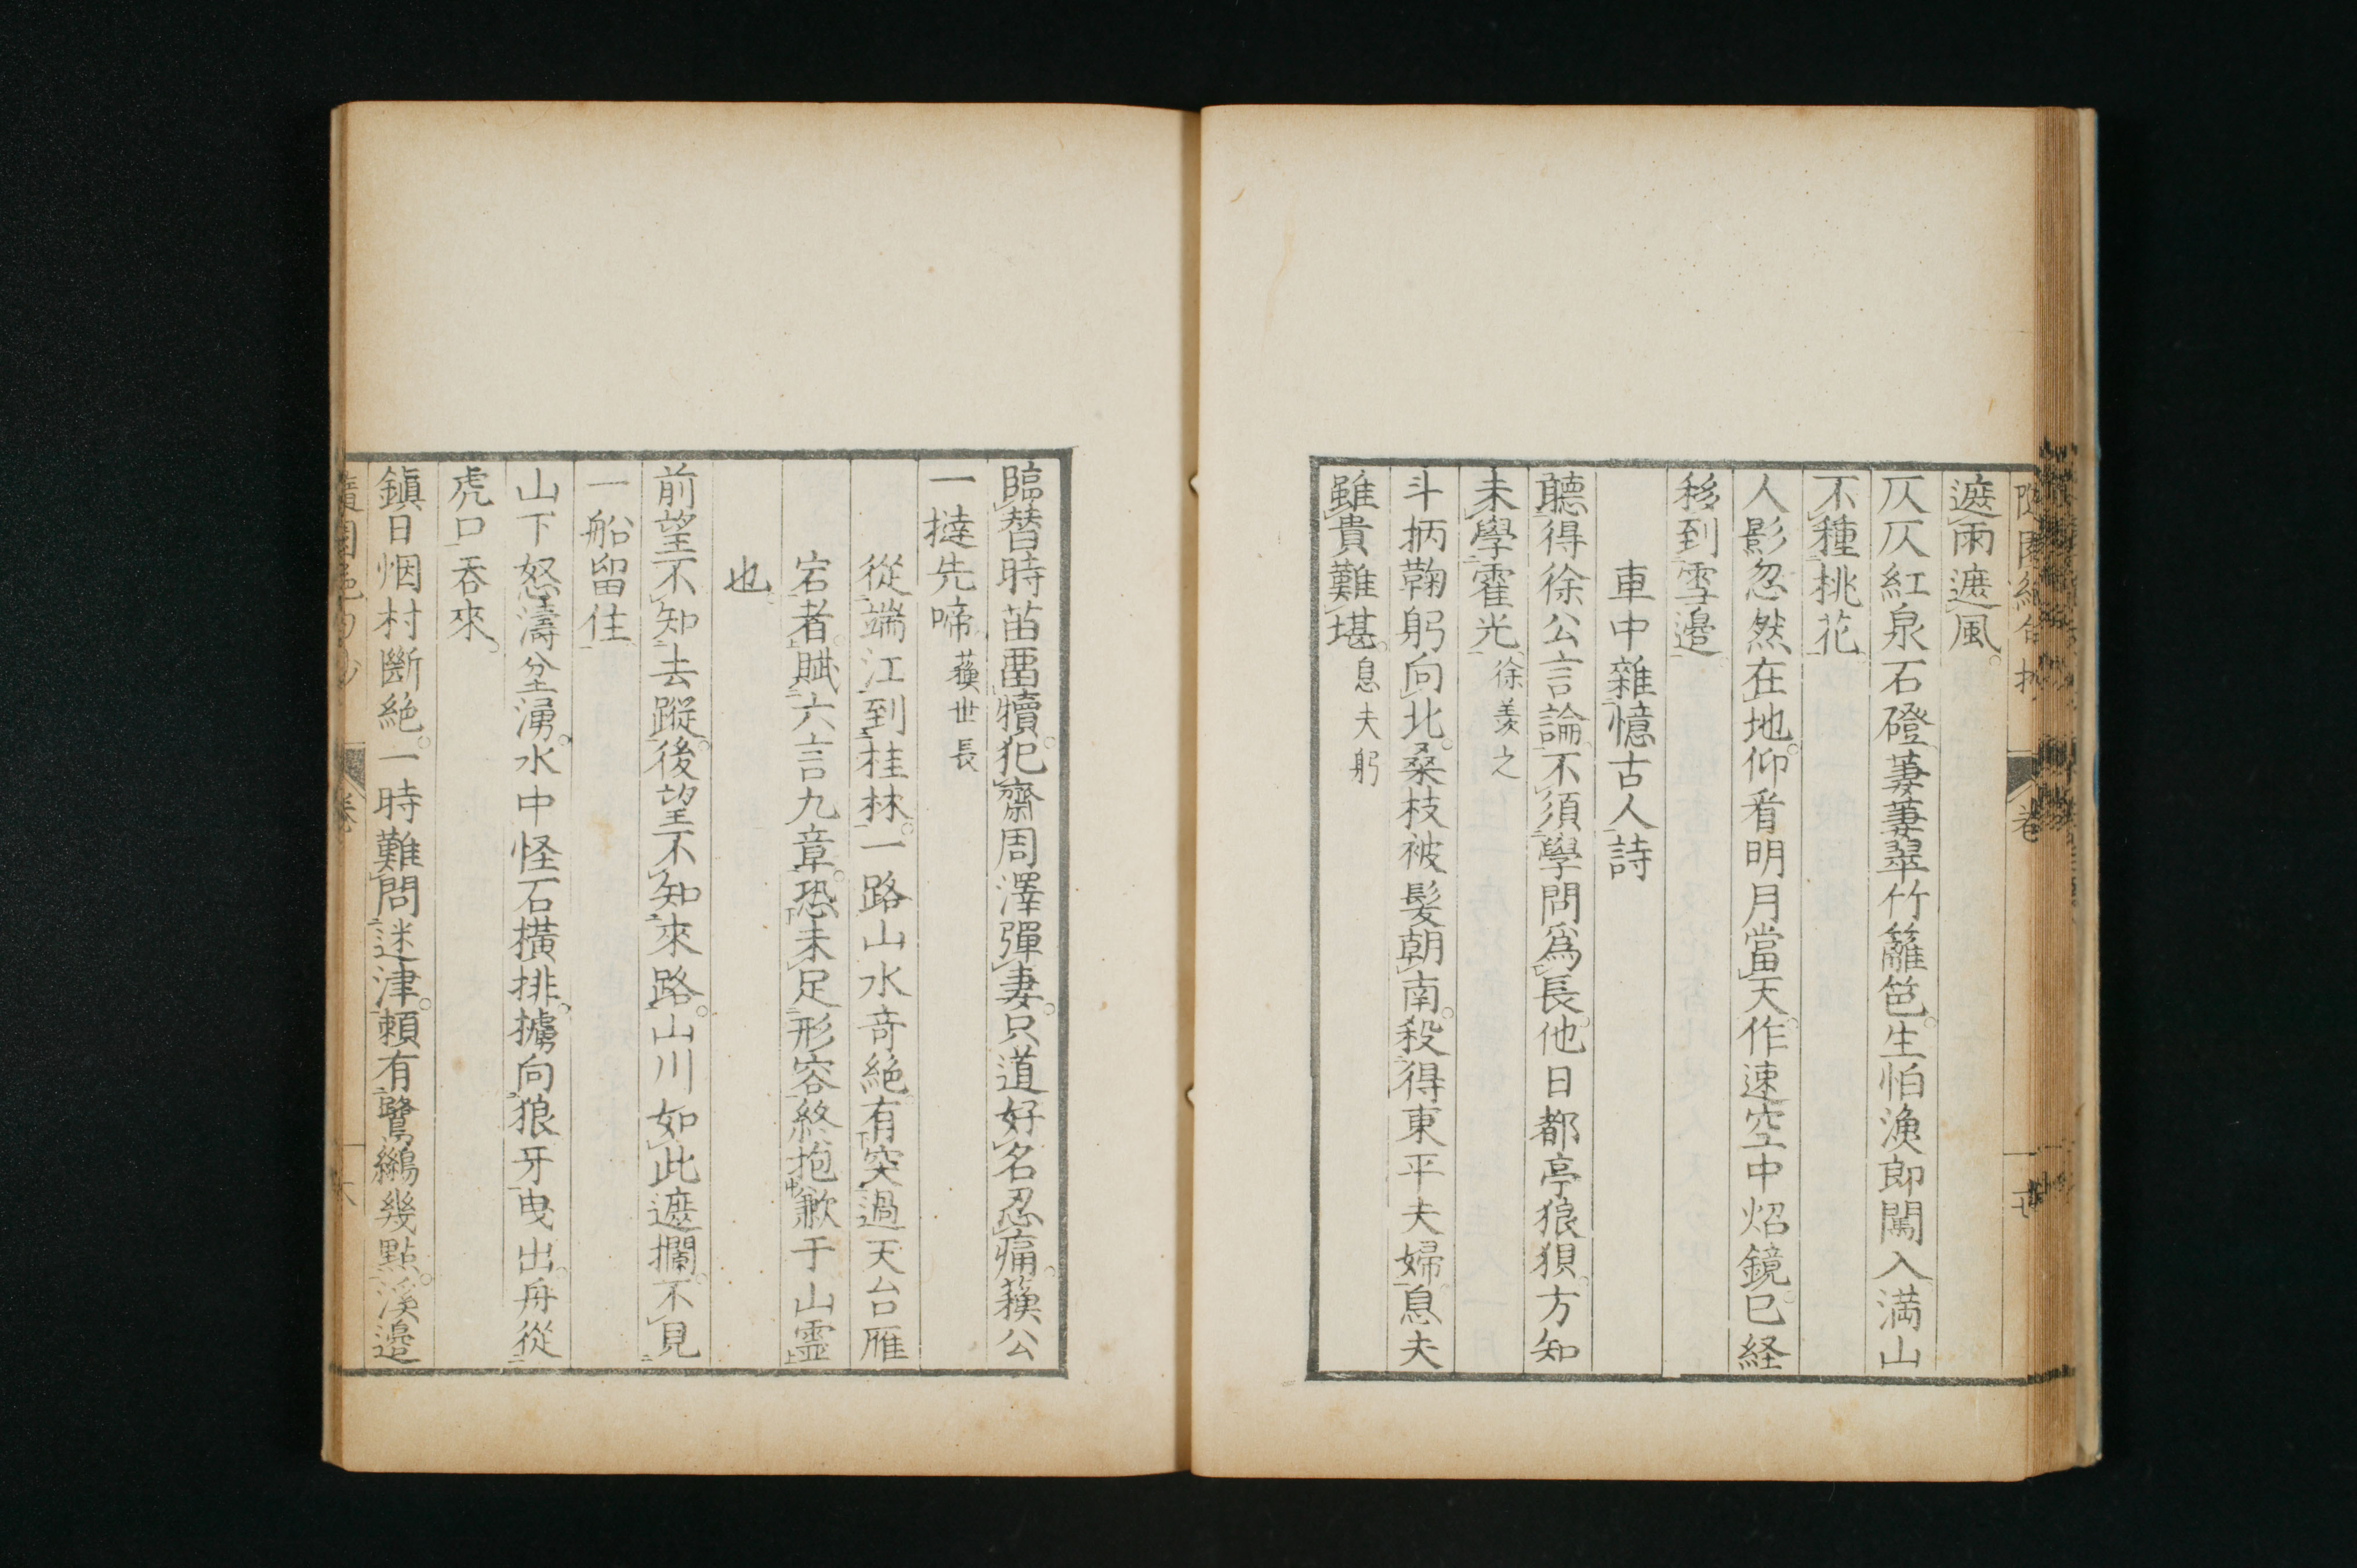 遮雨遮風
仄仄紅泉石磴萋萋翠竹籬笆生怕漁郎闖入満山
不種桃花
人影忽然在地仰看明月當天作速空中炤鏡已経
移到雪邉
車中雜憶古人詩
聽得徐公言論不須學問爲長他日都亭狼狽方知
未學霍光徐羨之
斗柄鞠躬向北桑枝被髮朝南殺得東平夫婦息夫
雖貴難堪息夫躬
臨替時苗畱犢犯齋周澤彈妻只道好名忍痛蘓公
一撻先啼蘓世長
從端江到桂林一路山水竒絶有突過天台雁
宕者賦六言九章恐未足形容終抱歉于山霊
也
前望不知去蹤後望不知來路山川如此遮攔不見
一船留住
山下怒濤坌湧水中怪石横排擄向狼牙曳出舟從
虎口吞來
鎮日烟村斷絶一時難問迷津頼有鷺鷀幾點溪邉